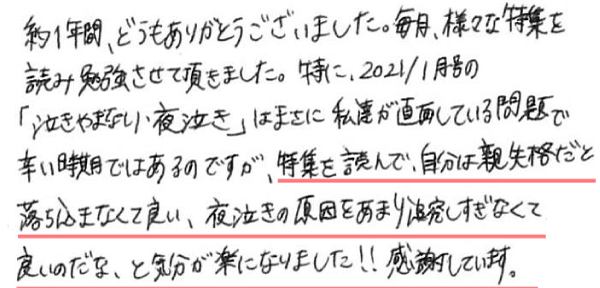 約1年間、どうもありがとうございました。毎月、様々な特集を
読み勉強させて頂きました。特に、2021/1月号の
「泣きやまない夜泣き」はまさに私達が直面している問題で
辛い時期ではあるのですが、特集を読んで、自分は親失格だと
落ち込まなくて良い、夜泣きの原因をあまり追究しすぎなくて
良いのだな、と気分が楽になりました!!感謝しています。